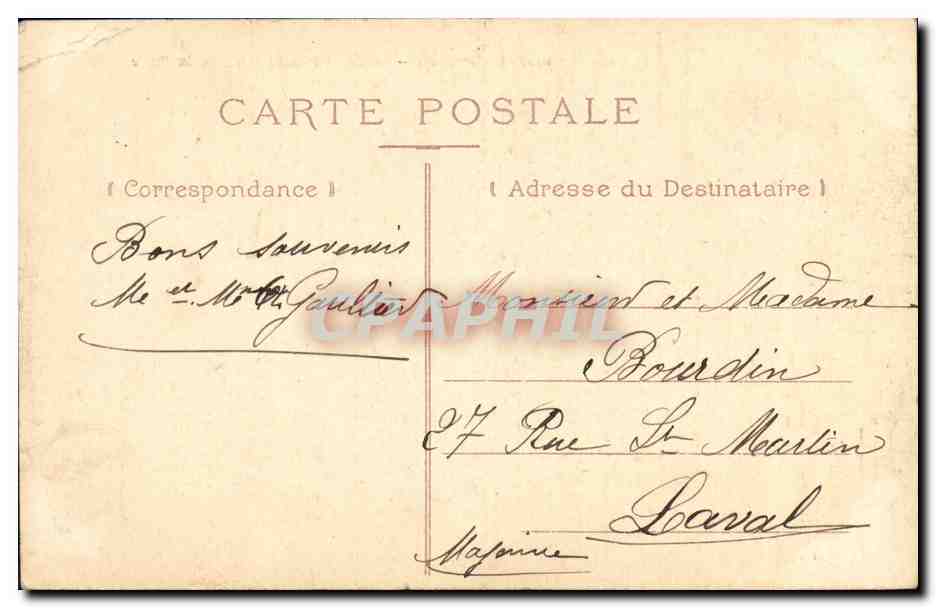 CARTE POSTALE
( Correspondance )
( Adresse du Destinataire )
Bons souvenirs
Me et Mr Gaultier
Monsieur et Madame
Bourdin
27 Rue St Martin
Laval
Mayenne
CPAPHIL